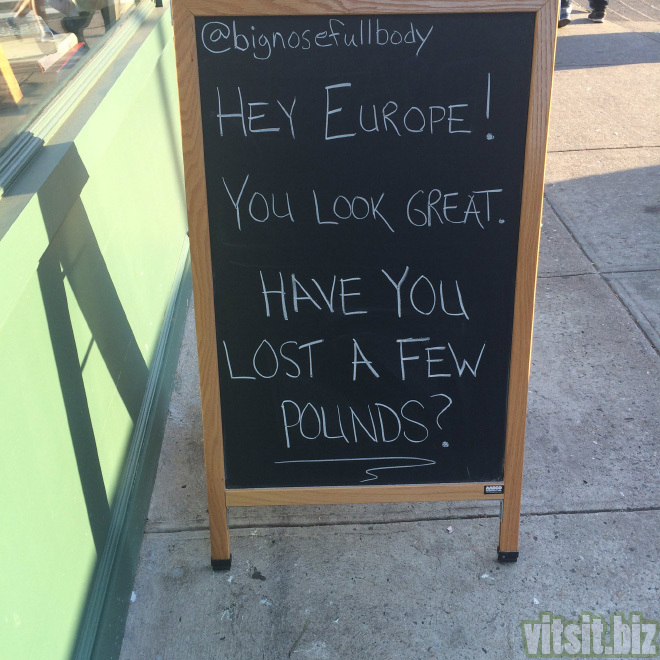 @bignosefullbody
HEY EUROPE!
YOU LOOK GREAT.
HAVE YOU
LOST A FEW
POUNDS?
vitsit.biz